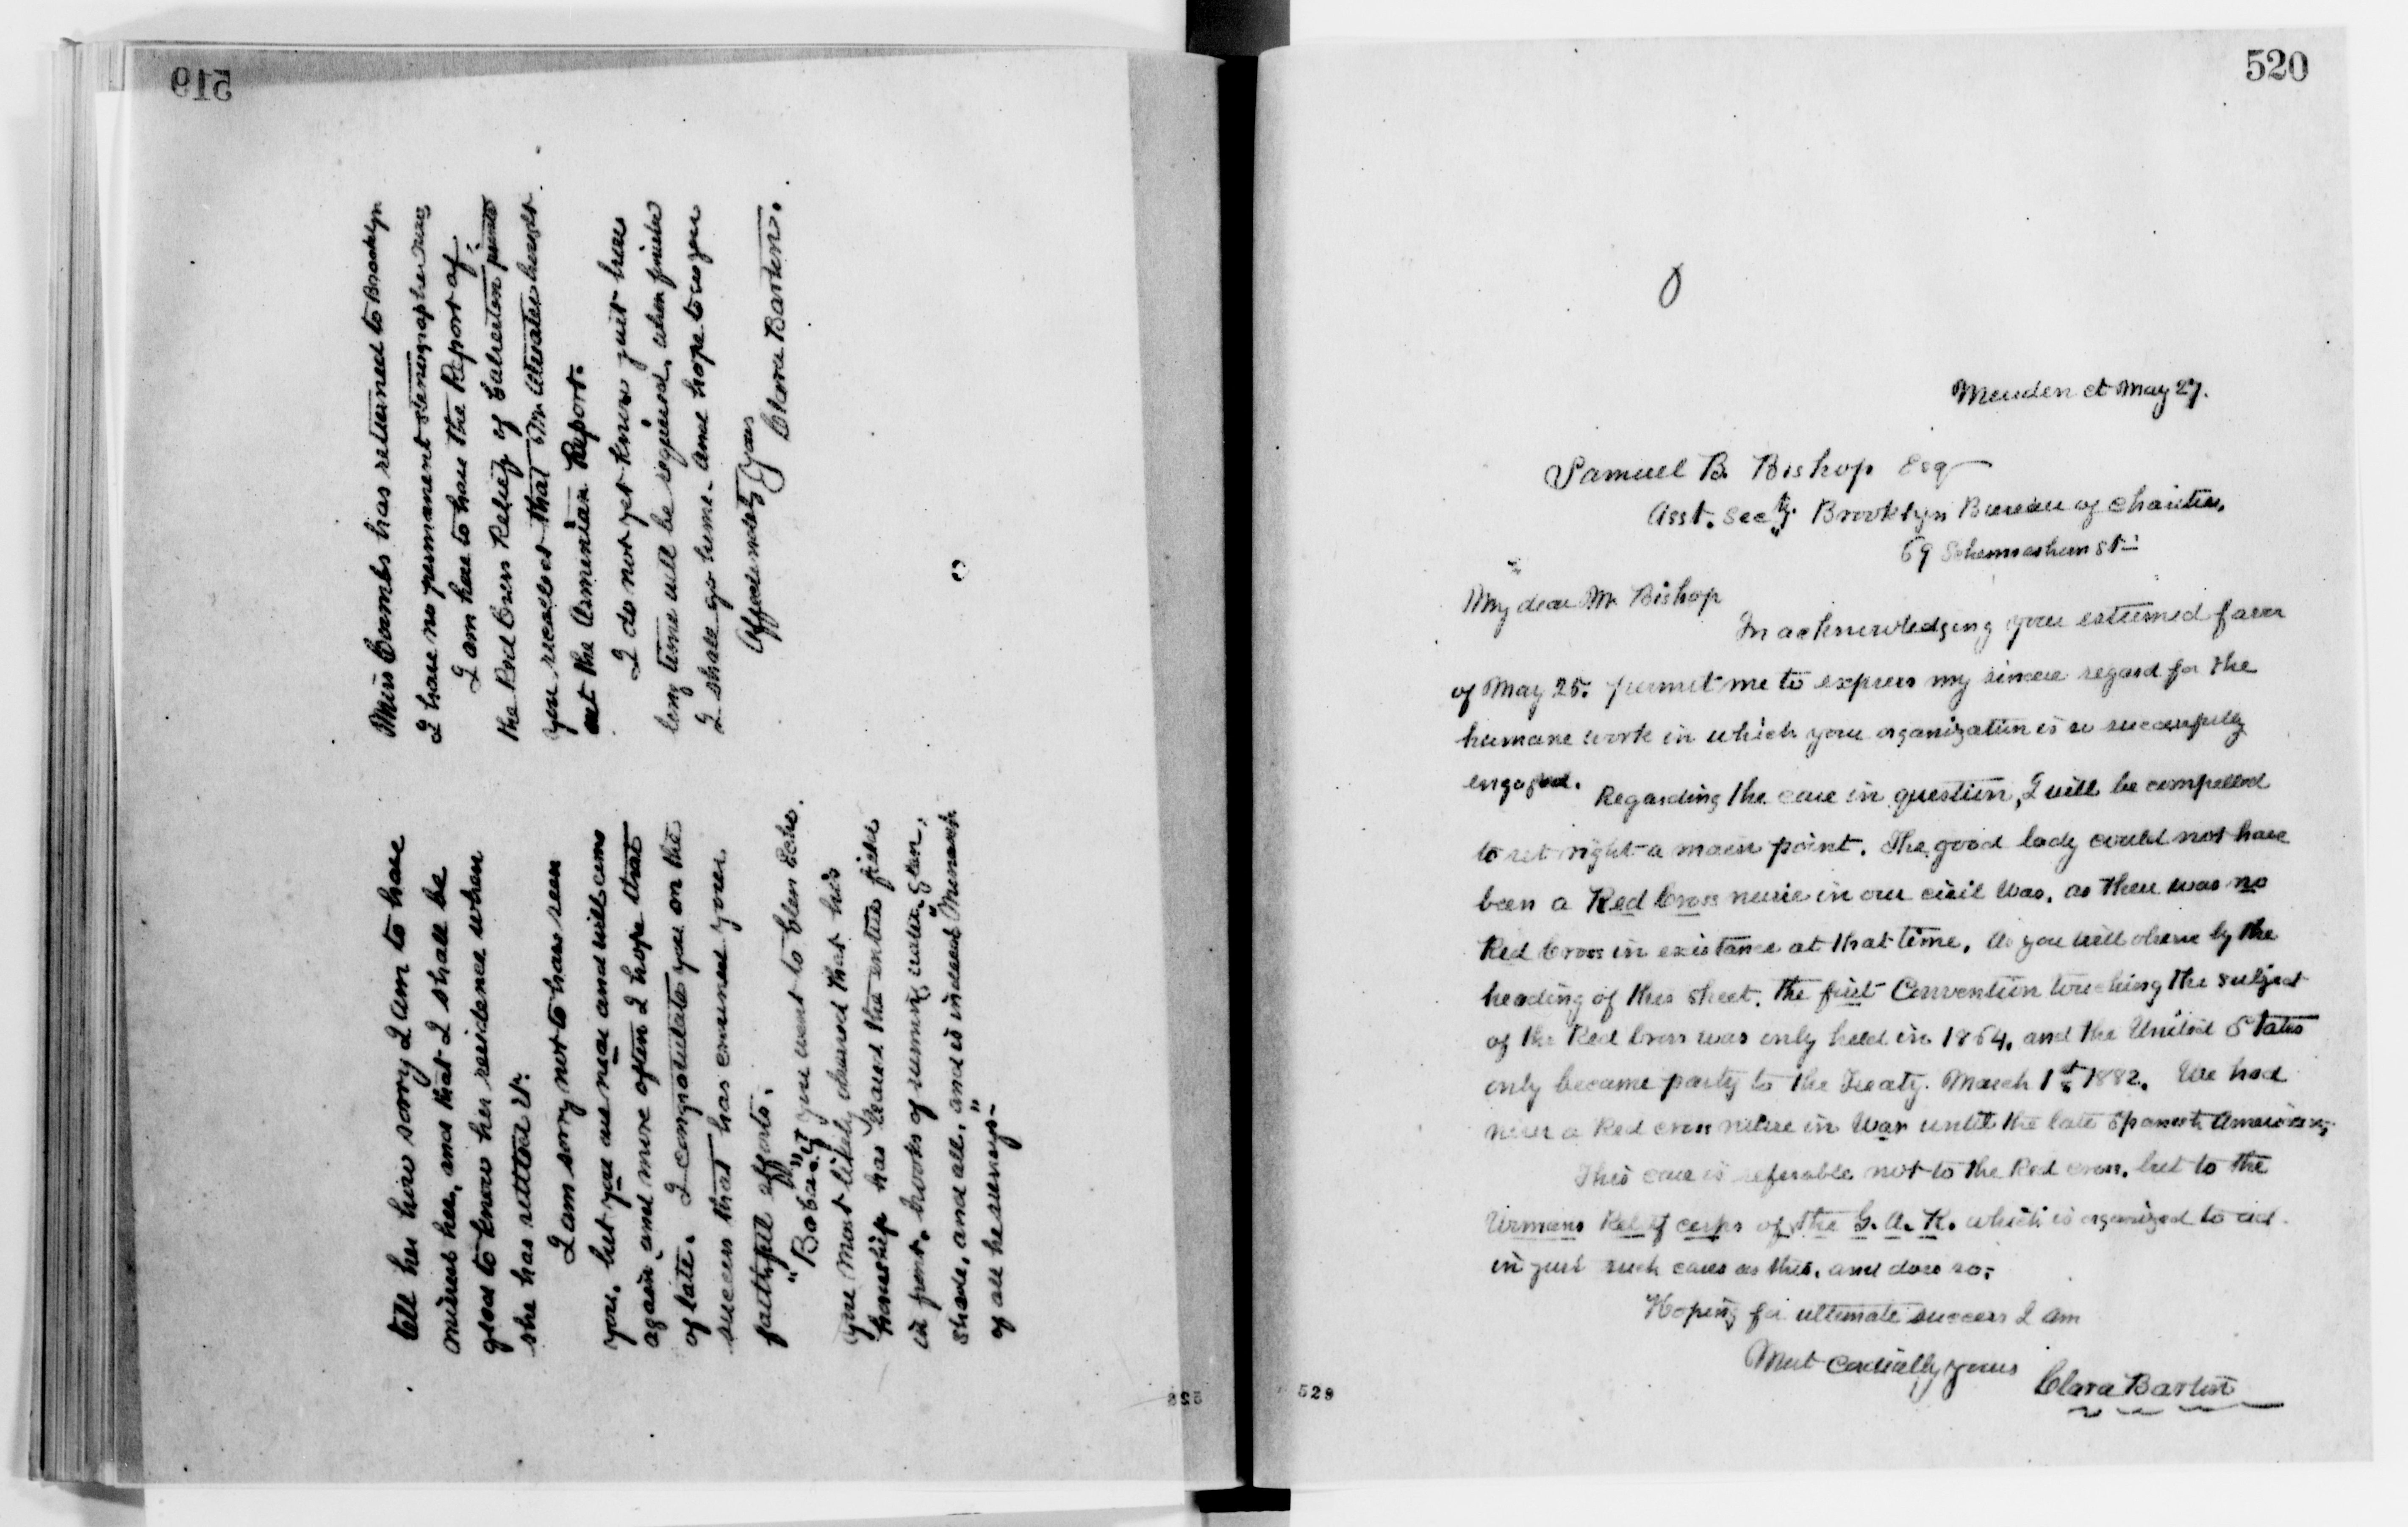 519
tell her how sorry I am to have
missed her, and that I shall be
glad to know her residence when
she has settled it.
I am sorry not to have seen
you, but you are near and will come
again, and more often I hope that
of late. I congratulate you on the
success that has crowned your
faithful efforts.
"Bobast" you went to Glen Echo.
You most likely observed that his
has leased the entire field
in front. brooks of running water, glen,
shade, and all, and is indeed "Monarch
of all he surveys"-
Miss Coombs has returned to Brooklyn
I have no permanent stenographer now
I am here to have the Report of
the Red Cross Relief of Galveston printed
you recollect that Mr. brought
out the Armenian Report.
I do not yet know just how
long time will be required, when finished
I shall go home. and hope to see you
Affectionately yours
Clara Barton.
528
520
Meriden ct May 27.
Samuel B. Bishop Esq
Asst. Secty. Brooklyn Bureau of Charities,
69 Schermerhorn St.
My dear Mr Bishop
In acknowledging your esteemed favor
of May 25. permit me to express my sincere regard for the
humane work in which your organization is so successfully
engaged.
Regarding the case in question, I will be compelled
to set right a main point. The good lady could not have
been a Red Cross nurse in our civil War. as there was no
Red Cross in existance at that time. As you will observe by the
heading of this sheet. the first Convention touching the subject
of the Red Cross was only held in 1864. and the United States
only became party to the Treaty. March 1st 1882. We had
never a Red cross nurse in War until the late Spanish American;
This case is referable not to the Red cross. but to the
Womans Relief corps of the G. A. R. which is organized to act
in just such cases as this, and does so;
Hoping for ultimate success I am
Most Cordially yours
Clara Barton
529